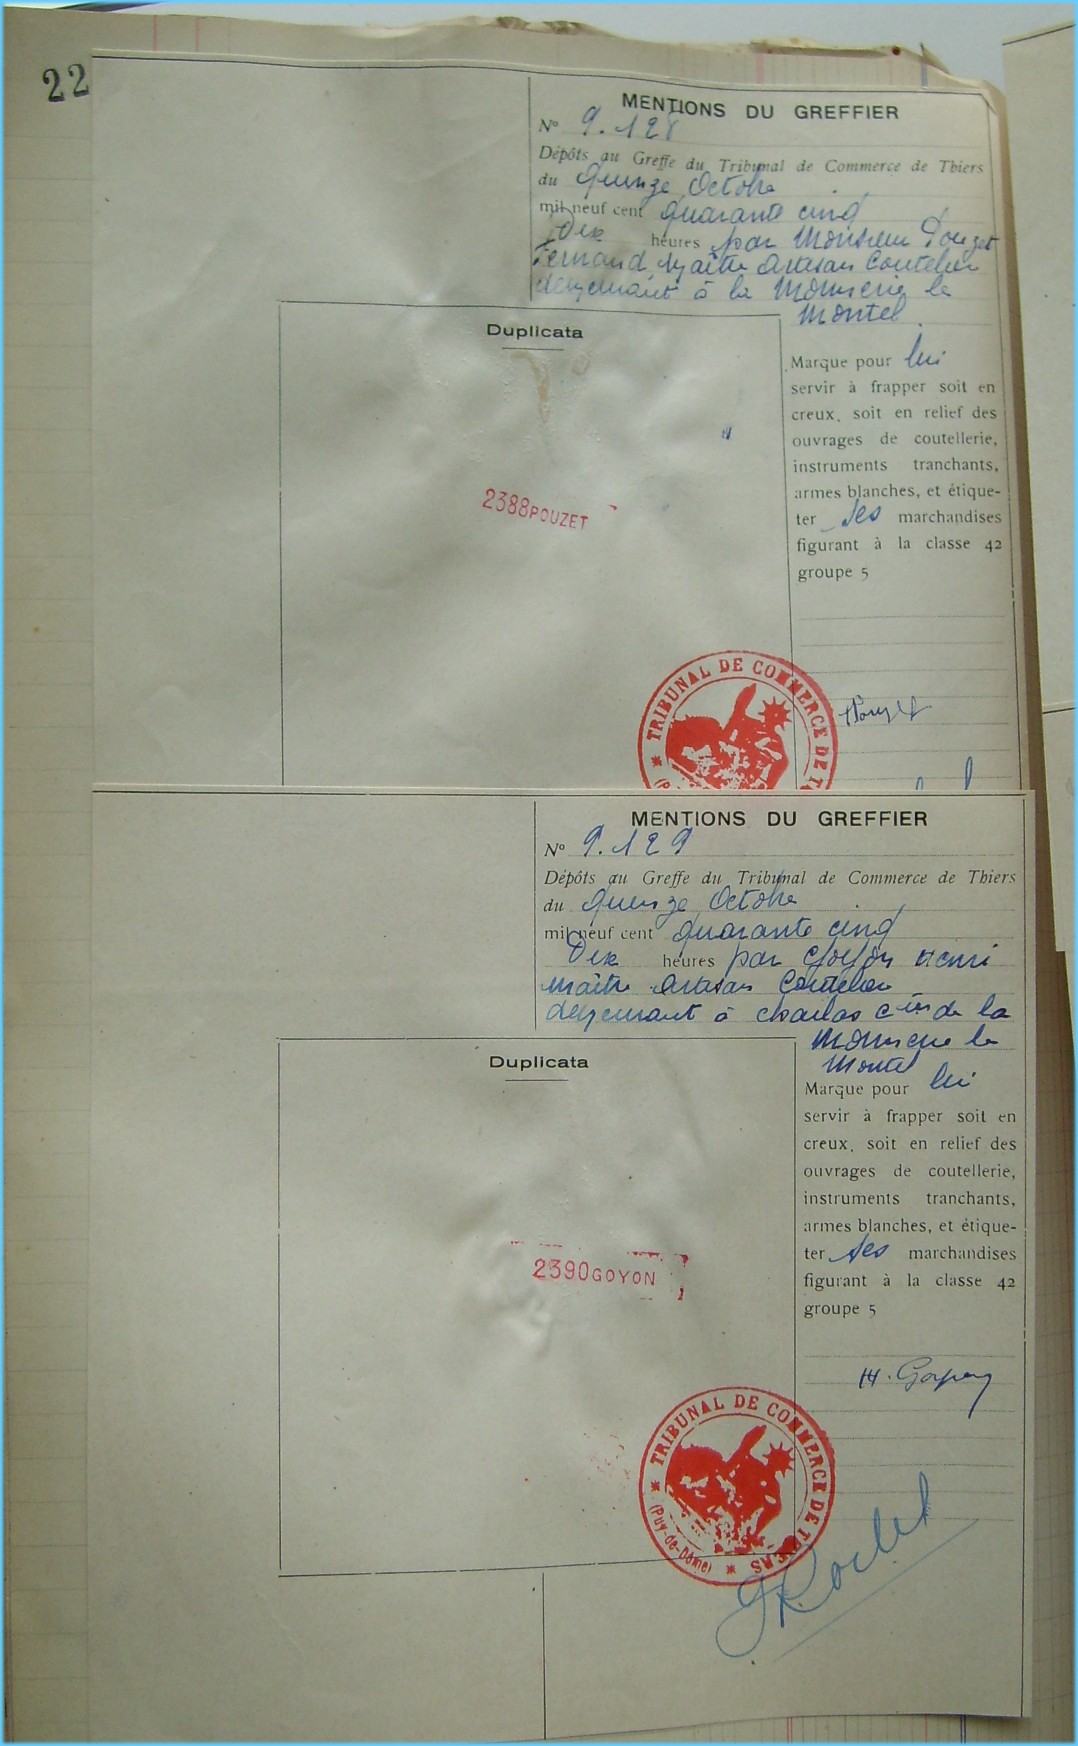 22
MENTIONS DU GREFFIER
N° 9.128
Dépôts au Greffe du Tribunal de Commerce de Thiers
du Quinze Octobre
mil neuf cent quarante cinq
Dix heures par Monsieur Pouzet
Fernand Maître Artisan Coutelier
demeurant à la Monnerie le
Montel.
Duplicata
Marque pour lui
servir à frapper soit en
creux, soit en relief des
ouvrages de coutellerie,
instruments tranchants,
armes blanches, et étique-
ter ses marchandises
figurant à la classe 42
groupe 5
2388 POUZET
TRIBUNAL DE COMMERCE DE
Pouzet
MENTIONS DU GREFFIER
N° 9.129
Dépôts au Greffe du Tribunal de Commerce de Thiers
du Quinze Octobre
mil neuf cent quarante cinq
Dix heures par Goyon Henri
maître Artisan Coutelier
demeurant à Charlas cne de la
Monnerie le
Montel
Duplicata
Marque pour lui
servir à frapper soit en
creux, soit en relief des
ouvrages de coutellerie,
instruments tranchants,
armes blanches, et étique-
ter ses marchandises
figurant à la classe 42
groupe 5
2390 GOYON
H. Goyon
TRIBUNAL DE COMMERCE DE THIERS
(Puy-de-Dôme)